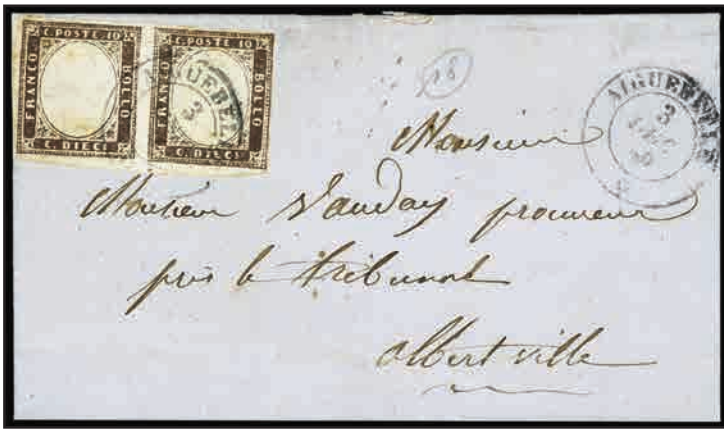 C. POSTE 10
FRANCO
BOLLO
C. DIECI
C. POSTE 10
FRANCO
BOLLO
C. DIECI
AIGUEBEL
3
18
AIGUEBELLE
3
Monsieur
Monsieur procureur
près le tribunal
Albertville